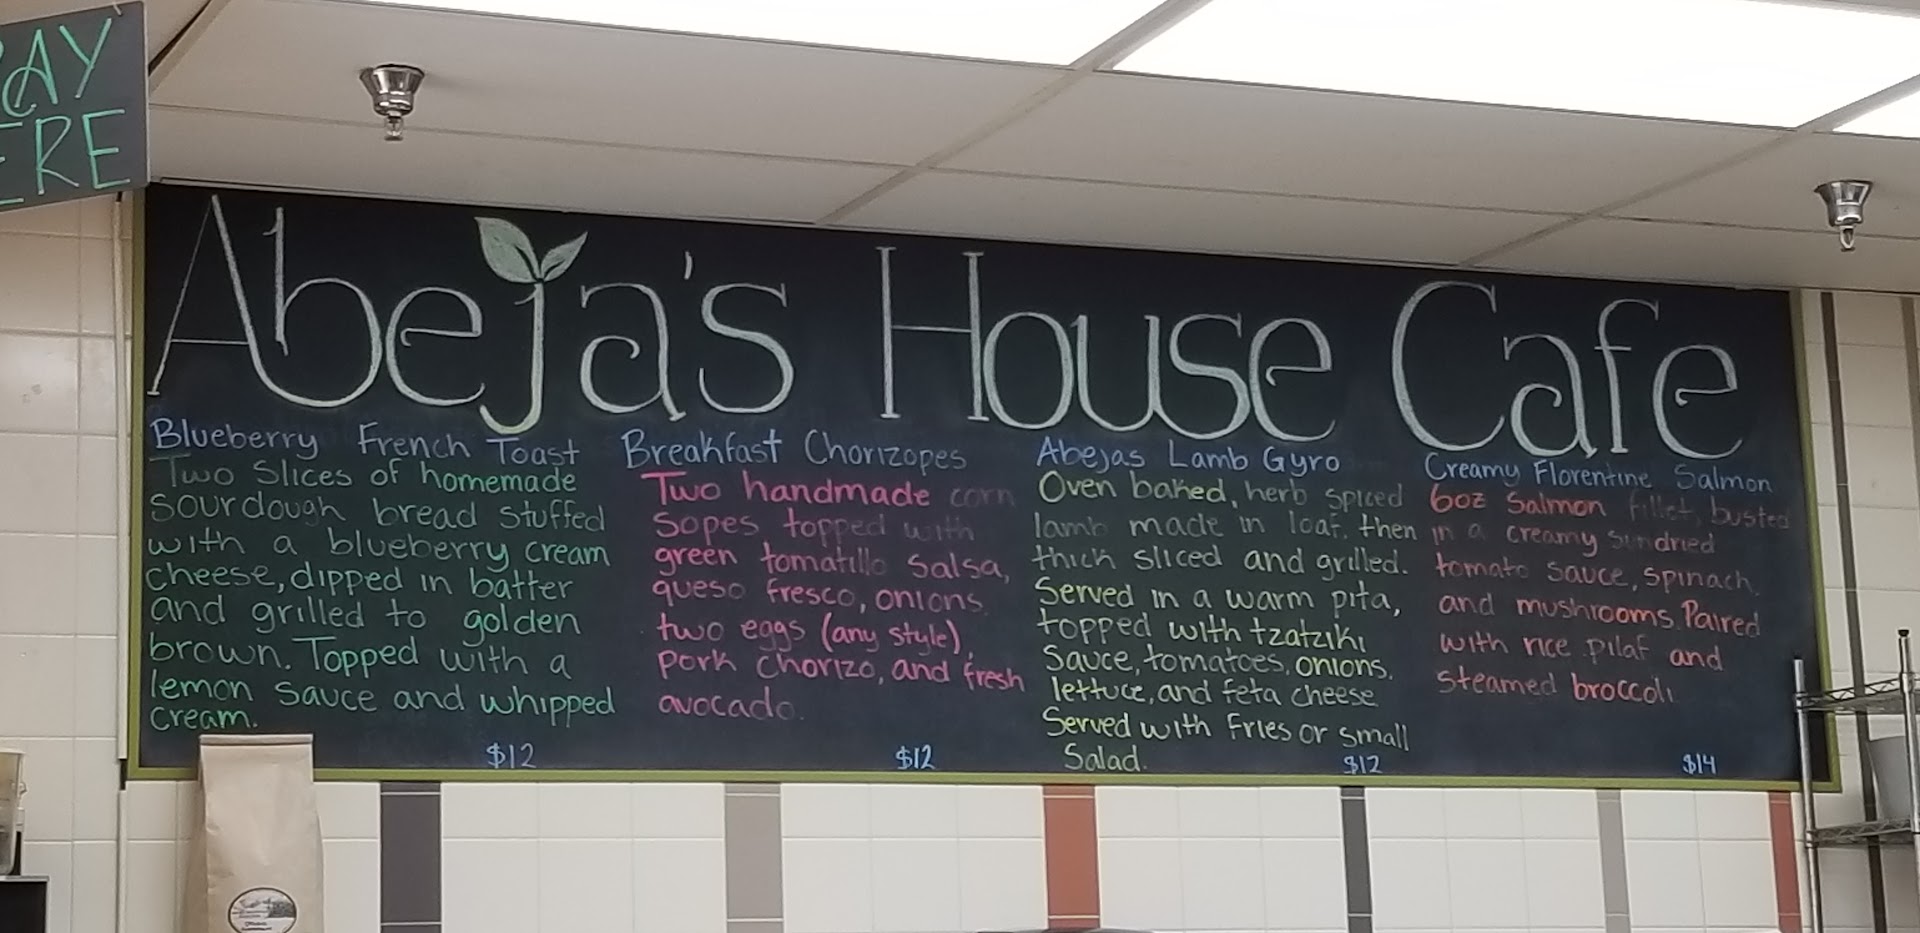 AY
ERE
Abeja's House Cafe
Blueberry French Toast
Two Slices of homemade
Sourdough bread stuffed
with a blueberry cream
cheese, dipped in batter
and grilled to golden
brown. Topped with a
lemon sauce and whipped
cream.
$12
Breakfast Chorizopes
Two handmade corn
Sopes topped with
green tomatillo Salsa,
queso fresco, onions
two eggs (any style),
pork chorizo, and fresh
avocado.
$12
Abejas Lamb Gyro
Oven baked, herb spiced
lamb made in loaf, then
thick sliced and grilled.
Served in a warm pita,
topped with tzatziki
Sauce, tomatoes, onions,
lettuce, and feta cheese
Served with Fries or small
Salad.
$12
Creamy Florentine Salmon
6oz Salmon fillet, busted
in a creamy sundried
tomato sauce, spinach,
and mushrooms. Paired
with rice pilaf and
steamed broccoli
$14